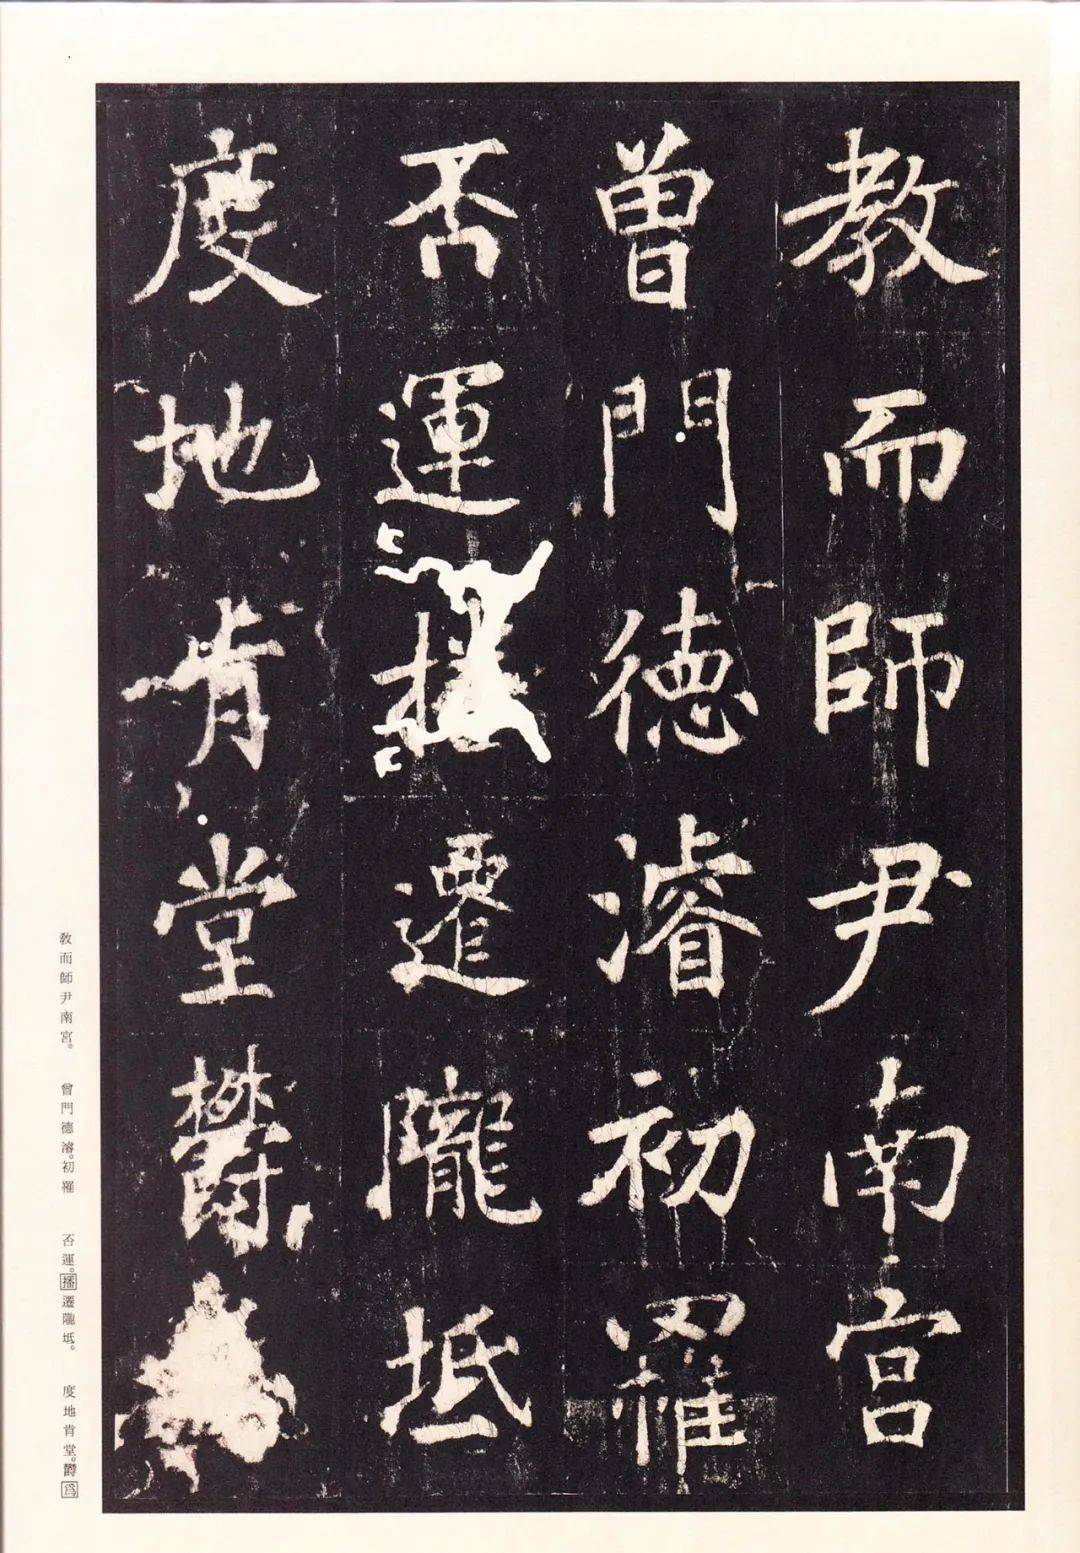 教而師尹南宮
曾門德濬初罹
否運播遷隴坻
度地肯堂欝
教而師尹南宮。 曾門德濬。初罹 否運。播遷隴坻。 度地肯堂。欝爲